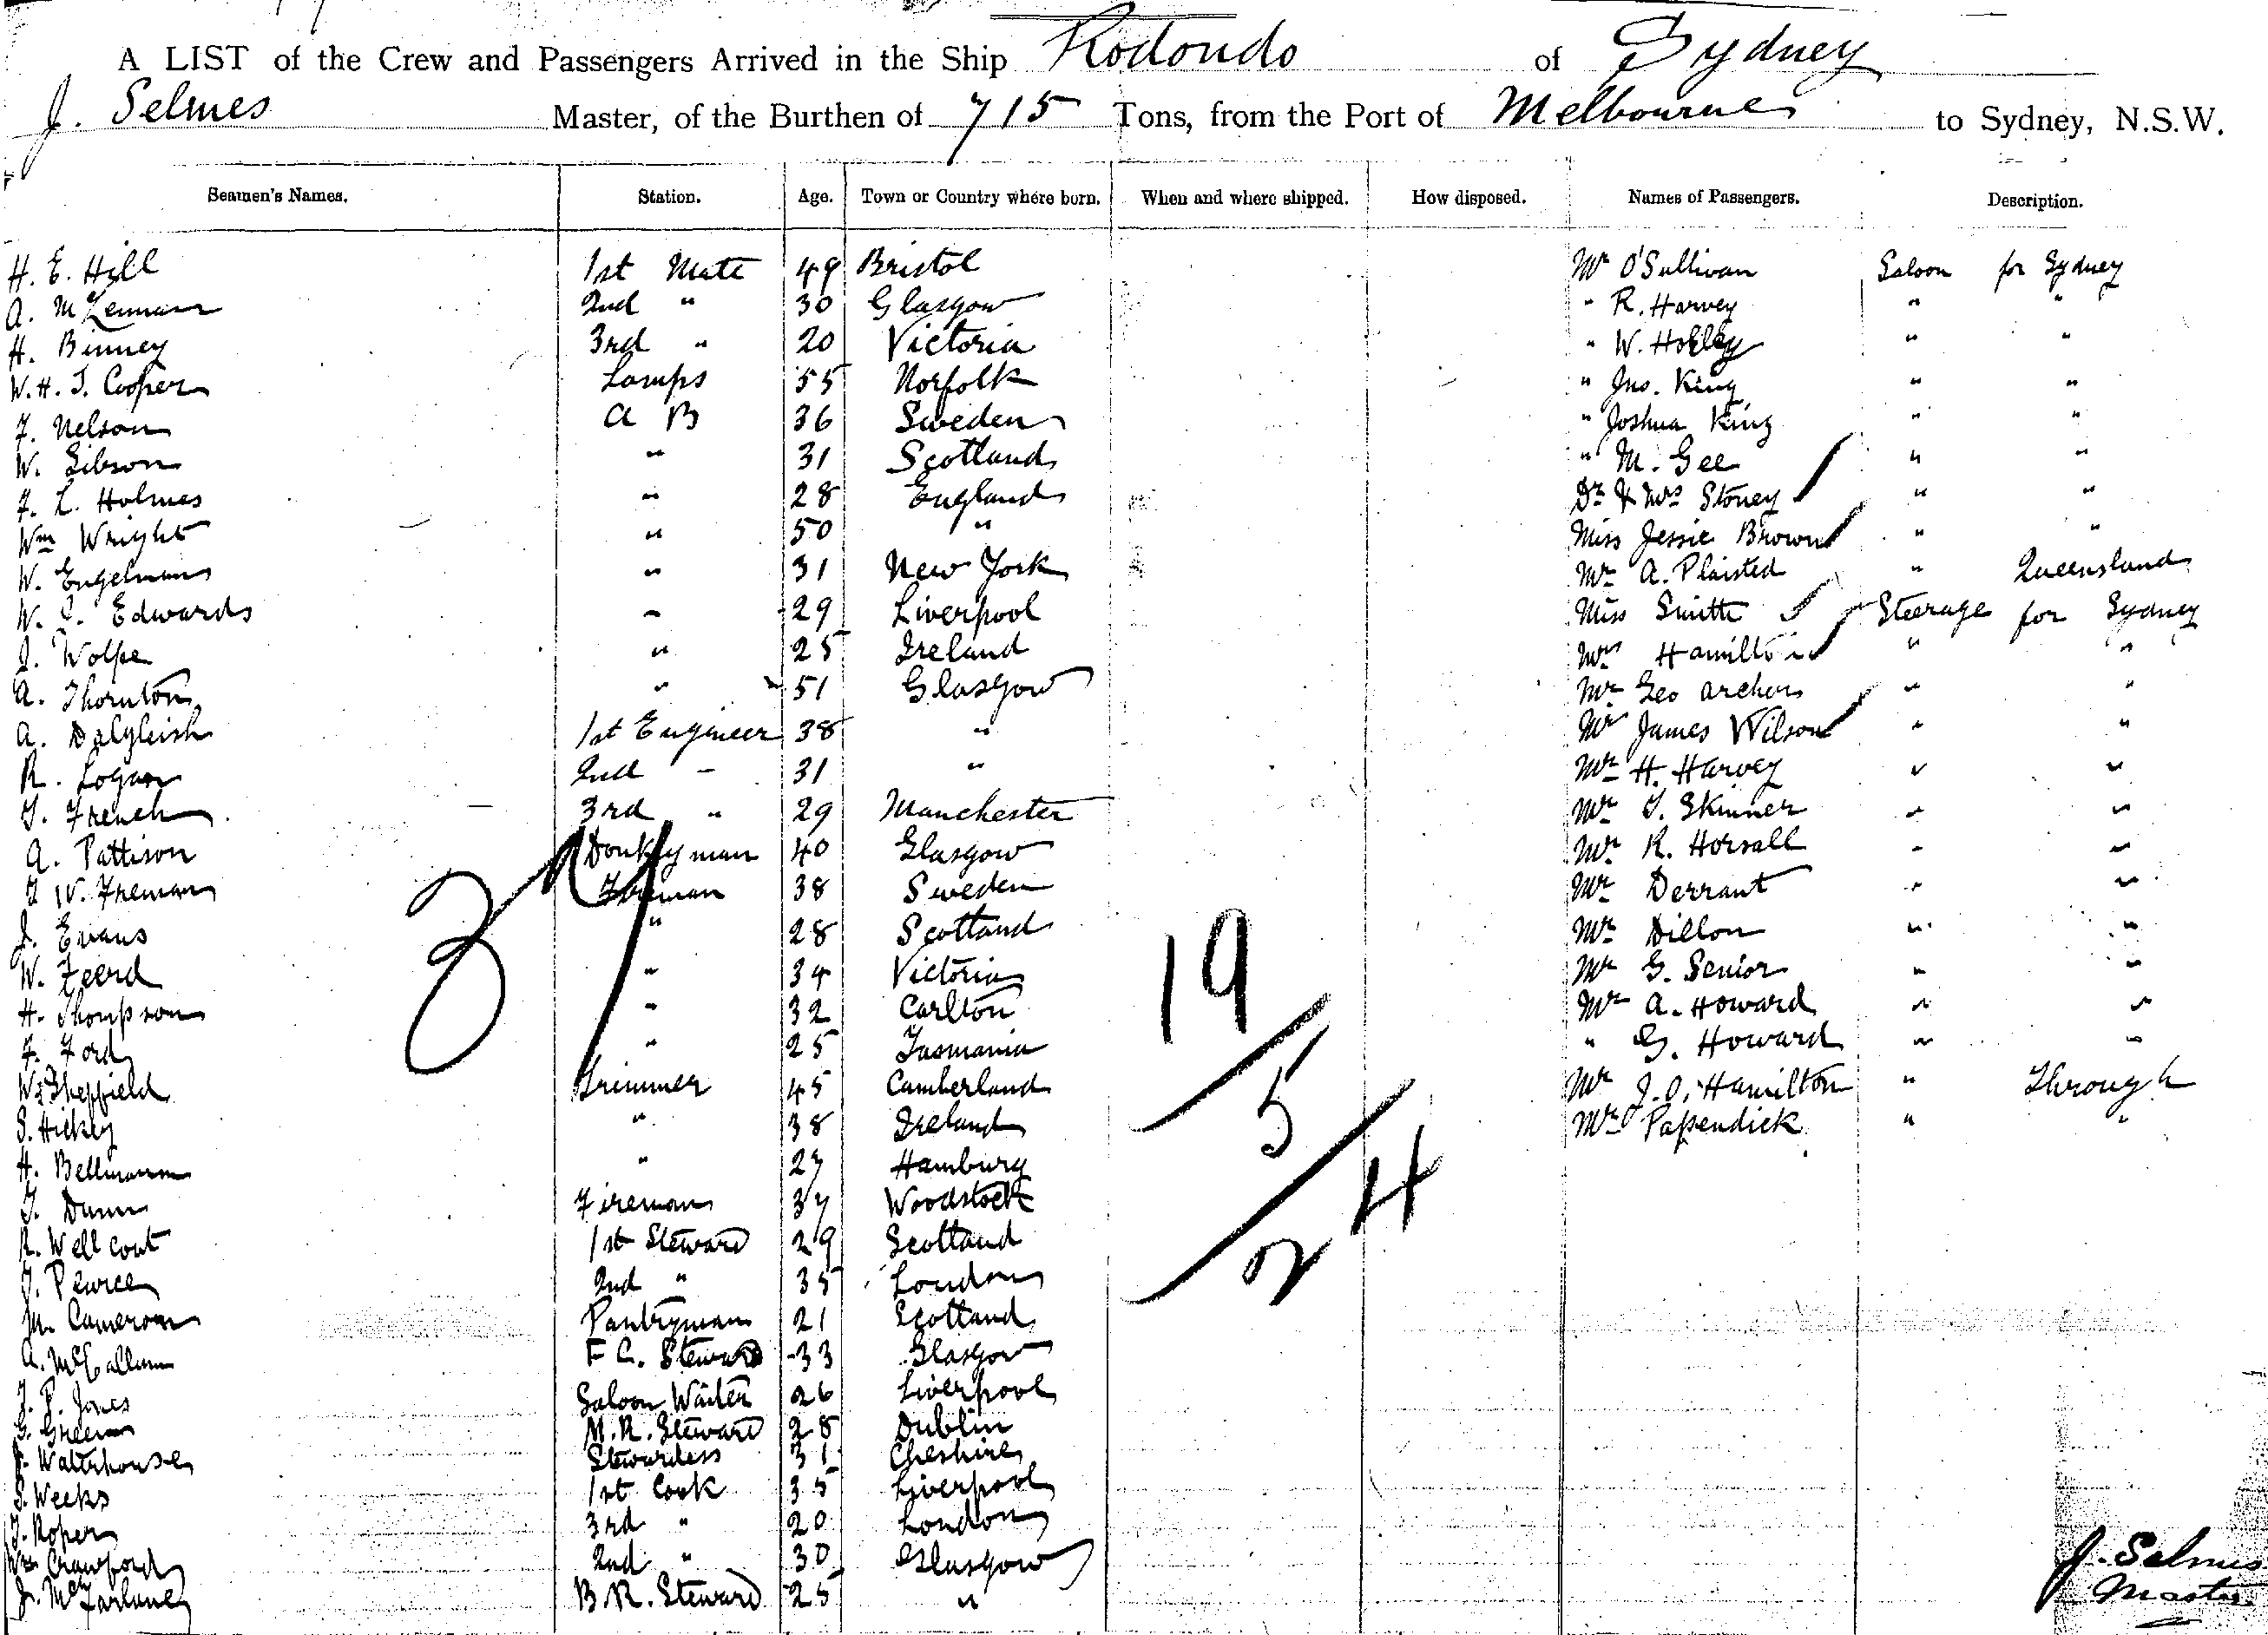 A LIST of the Crew and Passengers Arrived in the Ship Rodondo of Sydney
J. Selmes Master, of the Burthen of 715 Tons, from the Port of Melbourne to Sydney, N.S.W.
Seamen's Names. Station. Age. Town or Country where born. When and where shipped. How disposed. Names of Passengers. Description.
H. E. Hill 1st Mate 49 Bristol Mr O'Sullivan Saloon for Sydney
A. McLennan 2nd " 30 Glasgow " R. Harvey " "
H. Binney 3rd " 20 Victoria " W. " "
W. H. J. Cooper Lamps 55 Norfolk " Jno. King " "
F. Nelson A B 36 Sweden " Joshua King " "
W. Gibson " 31 Scotland " M. Gee " "
F. L. Holmes " 28 England Dr & Mrs Stoney " "
Wm Wright " 50 " Miss Jessie Brown " "
W. Engelman " 31 New York Mr A. Plaisted " Queensland
W. C. Edwards " 29 Liverpool Miss Smith Steerage for Sydney
J. Wolfe " 25 Ireland Mrs Hamilton " "
A. Thornton " 51 Glasgow Mr Geo Archer " "
A. Dalgleish 1st Engineer 38 " Mr James Wilson " "
R. Logan 2nd " 31 " Mr H. Harvey " "
T. French 3rd " 29 Manchester Mr T. Skinner " "
A. Pattison Donkeyman 40 Glasgow Mr R. Horsall " "
W. Freman Fireman 38 Sweden Mr Derrant " "
J. Evans " 28 Scotland Mr Dillon " "
W. " 34 Victoria Mr G. Senior " "
H. Thompson " 32 Carlton Mr A. Howard " "
F. Ford " 25 Tasmania " G. Howard " "
W. Sheffield Trimmer 45 Cumberland Mr J. O. Hamilton " Through
S. Hickey " 38 Ireland Mr Papendick " "
H. Bellmann " 27 Hamburg
T. Dunn Fireman 37 Woodstock
R. Wellcout 1st Steward 29 Scotland
J. Pearce 2nd " 35 London
M. Cameron Pantryman 21 Scotland
A. McCallum F C. Steward 33 Glasgow
J. P. Jones Saloon Waiter 26 Liverpool
G. Green M. R. Steward 28 Dublin
Waterhouse Stewardess 31 Cheshire
S. Weeks 1st Cook 35 Liverpool
J. Roper 3rd " 20 London
Wm Crawford 2nd " 30 Glasgow
J. McFarlane B R. Steward 25 "
37
19
5
24
J. Selmes
Master